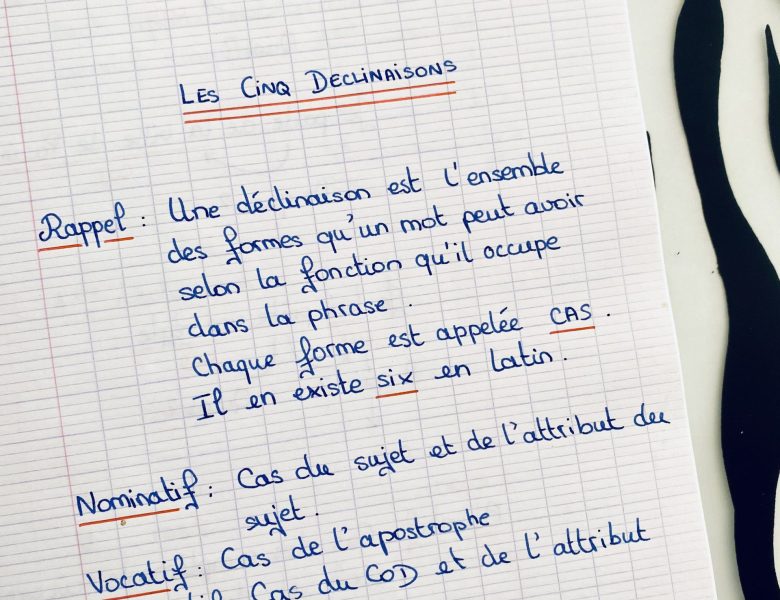 LES CINQ DECLINAISONS
Rappel : Une déclinaison est l'ensemble
des formes qu'un mot peut avoir
selon la fonction qu'il occupe
dans la phrase .
Chaque forme est appelée CAS .
Il en existe six en latin .
Nominatif : Cas du sujet et de l'attribut du
sujet .
Vocatif : Cas de l'apostrophe
Cas du COD et de l'attribut